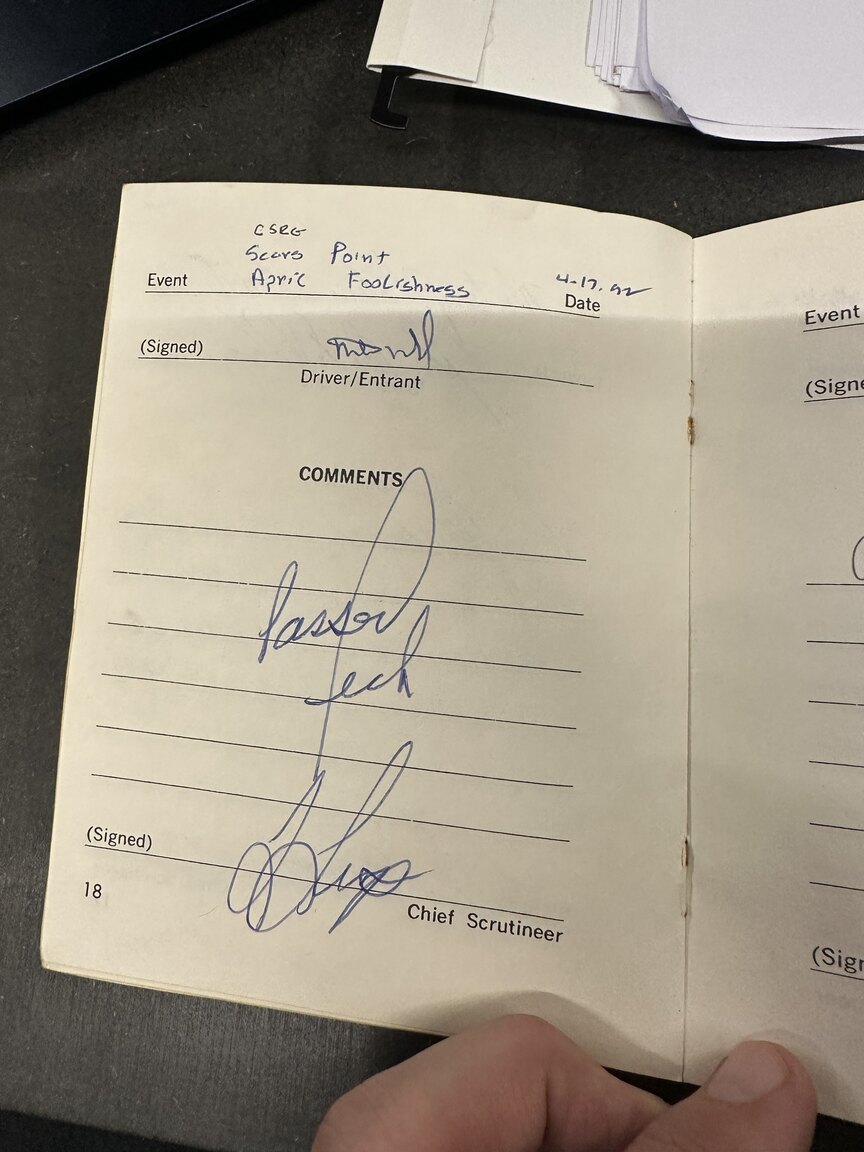 CSRG
Sears Point
Event April Foolishness 4-17-92
Date
(Signed)
Driver/Entrant
COMMENTS
Passed
Tech
(Signed)
18 Chief Scrutineer
Event
(Signe
(Sign